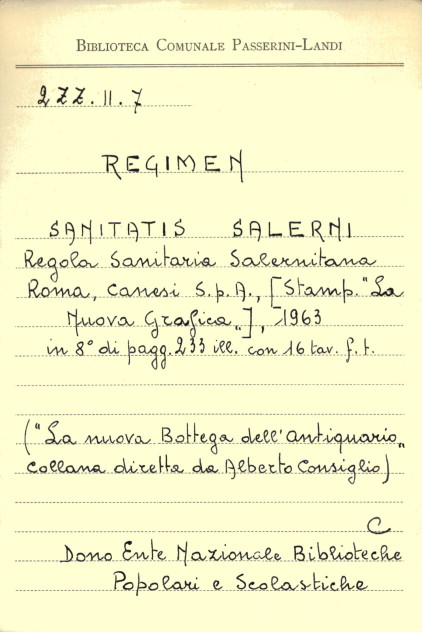 BIBLIOTECA COMUNALE PASSERINI-LANDI
2ZZ.II.7
REGIMEN
SANITATIS SALERNI
Regola Sanitaria Salernitana
Roma, Canesi S.p.A., [Stamp. "La
Nuova Grafica"], 1963
in 8° di pagg. 233 ill. con 16 tav. f. t.
("La nuova Bottega dell'Antiquario"
collana diretta da Alberto Consiglio)
C
Dono Ente Nazionale Biblioteche
Popolari e Scolastiche